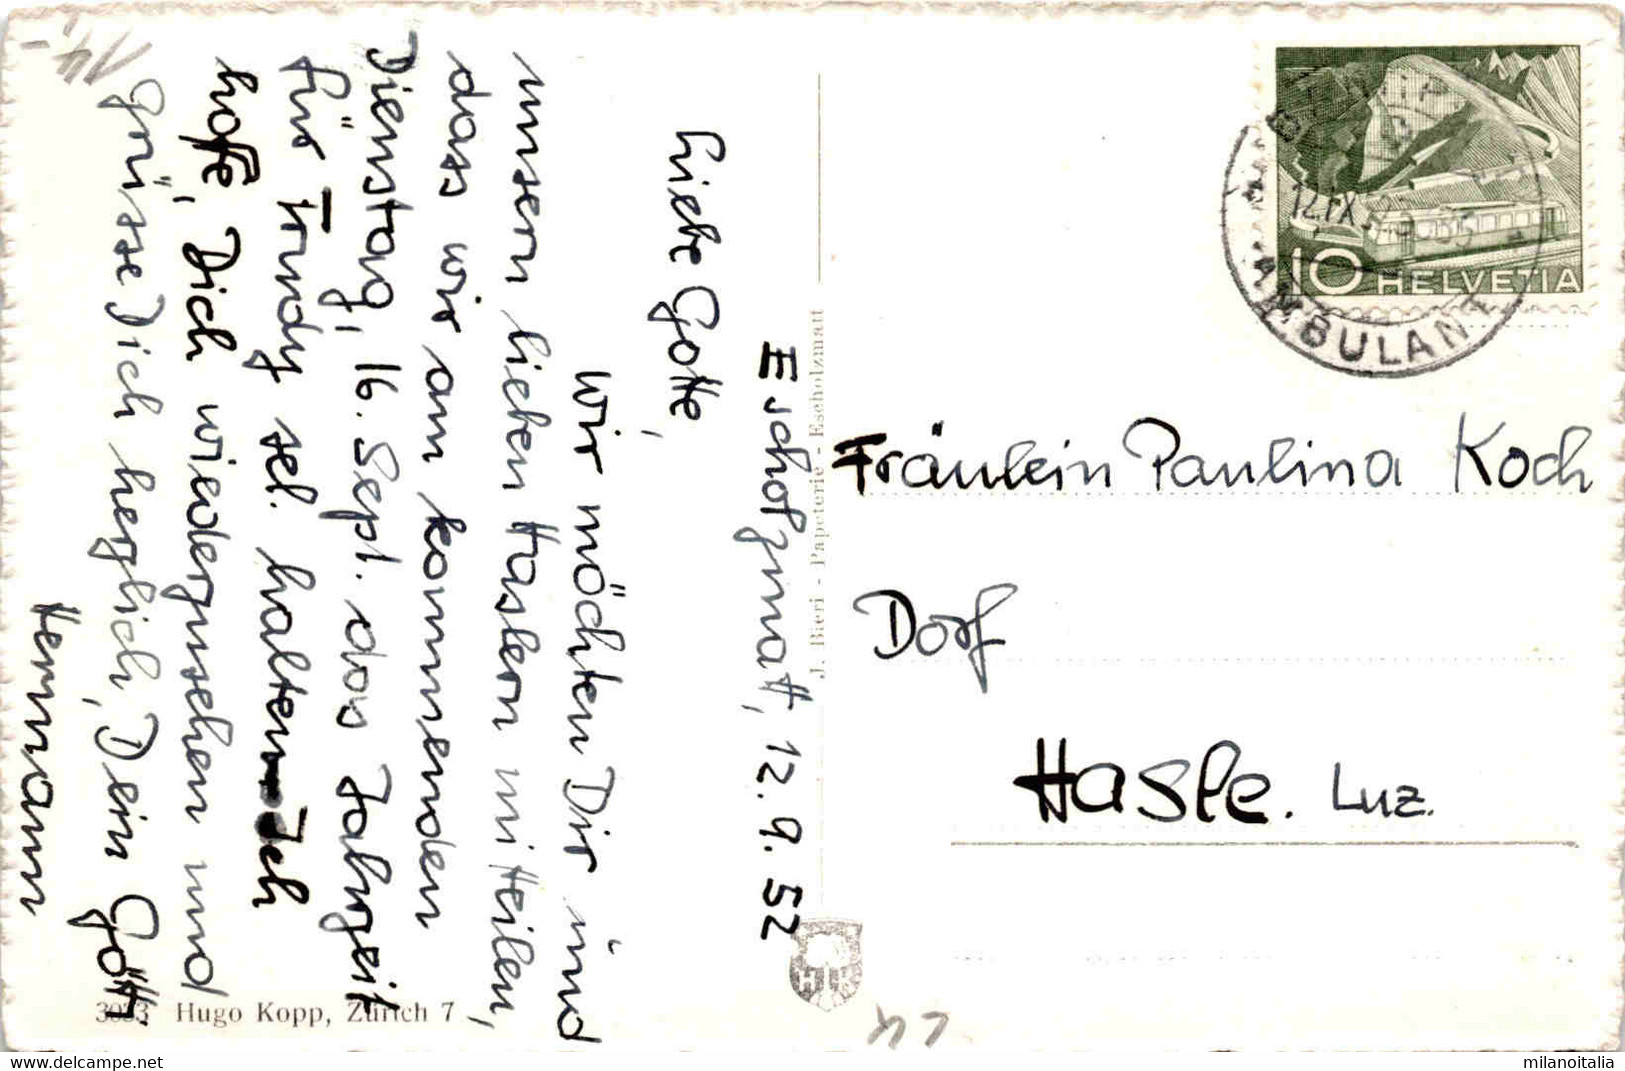 14.-
Escholzmatt, 12. 9. 52
Liebe Gotte,
Wir möchten Dir und
unsern lieben Haslern mitteilen,
dass wir am kommenden
Dienstag, 16. Sept. das Jahrzeit
für Trudy sel. halten. Ich
hoffe, Dich wiederzusehen und
grüsse Dich herzlich, Dein Götti
Hermann
J. Bieri - Papeterie - Escholzmatt
3033 Hugo Kopp, Zürich 7
H K
12.IX.52
AMBULANT
10 HELVETIA
Fräulein Paulina Koch
Dorf
Hasle. Luz.
milanoitalia